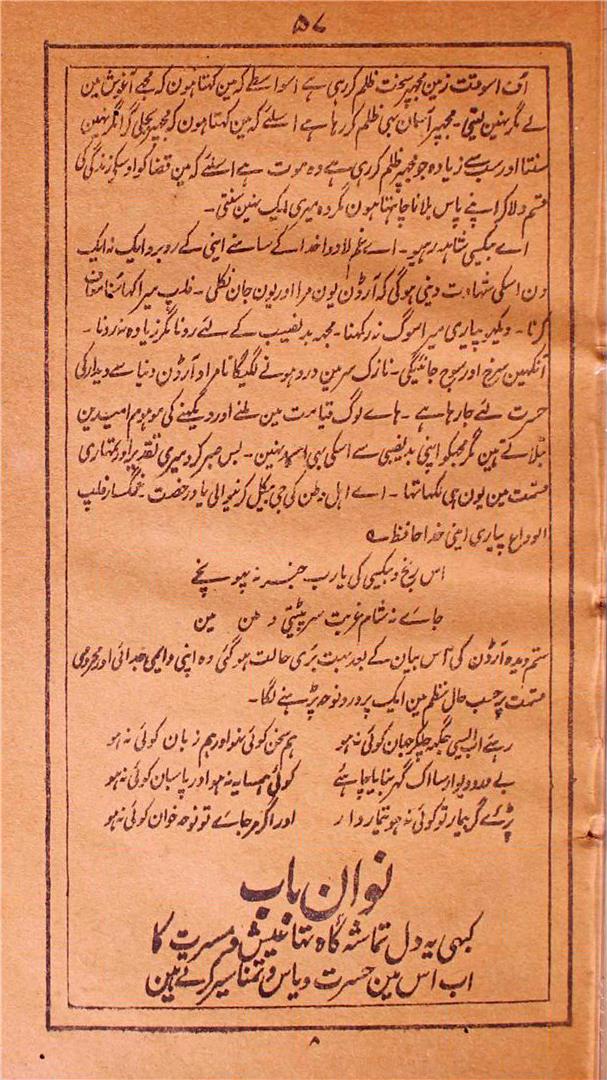 ۵۷
اُف اسوقت زمین مجھپر سخت ظلم کر رہی ہے اسواسطے کہ مین کہتا ہون کہ مجھے آغوش مین
لے مگر نہین لیتی۔ مجھپر آسمان بھی ظلم کر رہا ہے اسلئے کہ مین کہتا ہون کہ مجھپر بجلی گرا مگر نہین
سنتا اور سب سے زیادہ جو مجھپر ظلم کر رہی ہے وہ موت ہے اسلئے کہ مین قضا کو اوسکی زندگی کی
قسم دلا کر اپنے پاس بلانا چاہتا ہون مگر وہ میری ایک نہین سنتی۔
اے بیکسی شاہد رہیو۔ اے غم لادوا خدا کے سامنے اینی کے روبرو ایک نہ ایک
دن اسکی شہادت دینی ہوگی کہ آرڈن یون مرا اور یون جان نکلی۔ فلپ میرا کہا سُنا معاف
کرنا۔ دیکھو پیاری میرا سوگ نہ رکھنا۔ مجھ بدنصیب کے لئے رونا مگر زیادہ نہ رونا۔
آنکھین سرخ اور سوج جائینگی۔ نازک سر مین درد ہونے لگیگا نامراد آرڈن دنیا سے دیدار کی
حسرت لئے جا رہا ہے۔ ہاے لوگ قیامت مین ملنے اور دیکھنے کی موہوم امیدین
بتلاتے ہین مگر مجھکو اپنی بدنصیبی سے اسکی بھی امید نہین۔ بس صبر کرو میری تقدیر اور تمہاری
قسمت مین یون ہی لکھا تھا۔ اے اہل وطن کی جی بیکل کرنیوالی یاد رخصت۔ غمگسار فلپ
الوداع پیاری اینی خدا حافظ ے
اس رنج و بیکسی کی یارب خبر نہ پہونچے
جاے نہ شام غربت سر پیٹتی وطن مین
ستم دیدہ آرڈن کی اس بیان کے بعد بہت بُری حالت ہو گئی وہ اپنی دایمی جدائی اور محرومی
قسمت پر حسب حال نظم مین ایک پردرد نوحہ پڑہنے لگا۔
رہئے اب ایسی جگہ چلکر جہان کوئی نہ ہو ہم سخن کوئی نہو اور ہم زبان کوئی نہ ہو
بے در و دیوار سا اک گھر بنایا چاہئے کوئی ہمسایہ نہ ہو اور پاسبان کوئی نہ ہو
پڑئے گر بیمار تو کوئی نہ ہو تیماردار اور اگر مر جاے تو نوحہ خوان کوئی نہ ہو
نوان باب
کبھی یہ دل تماشہ گاہ تھا عیش و مسرت کا
اب اس مین حسرت و یاس و تمنا سیر کرتے ہین
۸